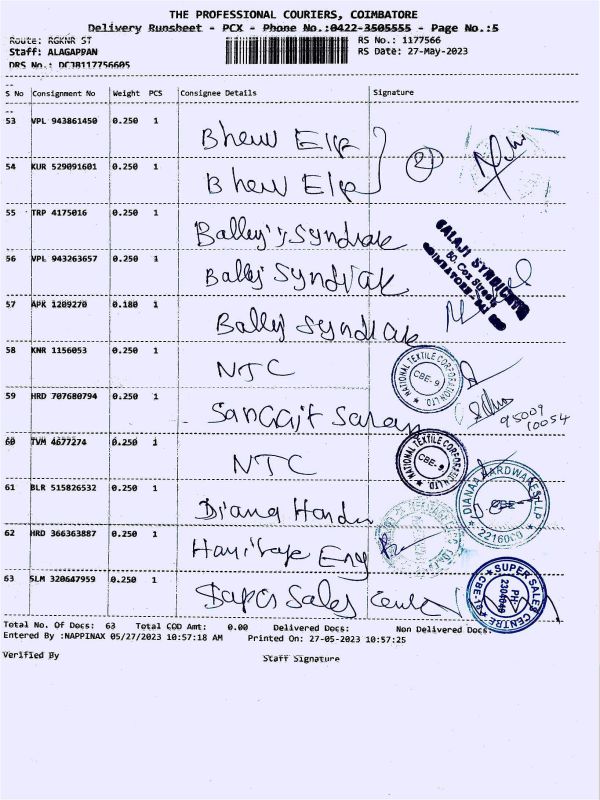 THE PROFESSIONAL COURIERS, COIMBATORE
Delivery Runsheet - PCX - Phone No.:0422-3505555 - Page No.:5
Route: RGKNR ST RS No.: 1177566
Staff: ALAGAPPAN RS Date: 27-May-2023
DRS No.: DCJB117756605
S No Consignment No Weight PCS Consignee Details Signature
53 VPL 943861450 0.250 1 Bheul Elp
54 KUR 529091601 0.250 1 Bheul Elp
55 TRP 4175016 0.250 1
56 VPL 943263657 0.250 1
BALAJI SYNDICATE
80, Cox Street
57 APK 1209270 0.180 1
58 KNR 1156053 0.250 1 NTC
NATIONAL TEXTILE CORPORATION LTD.
CBE-9
59 HRD 707680794 0.250 1 Sangajit Saran
95009
10054
60 TVM 4677274 0.250 1 NTC
NATIONAL TEXTILE CORPORATION LTD.
CBE-9
61 BLR 515826532 0.250 1 Diana Hardw
DIANAA HARDWARES LLP
CBE
2216000
62 HRD 366363887 0.250 1
63 SLM 320647959 0.250 1 Super Sales Centre
SUPER SALES CENTRE
CBE-18
PH:
2304046
Total No. Of Docs: 63 Total COD Amt: 0.00 Delivered Docs: Non Delivered Docs:
Entered By :NAPPINAX 05/27/2023 10:57:18 AM Printed On: 27-05-2023 10:57:25
Verified By Staff Signature